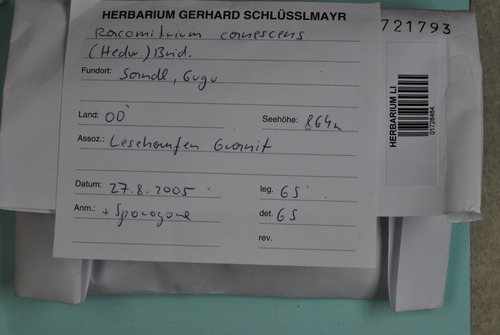 HERBARIUM GERHARD SCHLÜSSLMAYR
Racomitrium canescens
(Hedw.) Brid.
Fundort: Sandl, Gugu
Land: OÖ Seehöhe: 864m
Assoz.: Lesehaufen Granit
Datum: 27.8.2005 leg. GS
Anm.: + Sporogone det. GS
rev.
721793
HERBARIUM LI